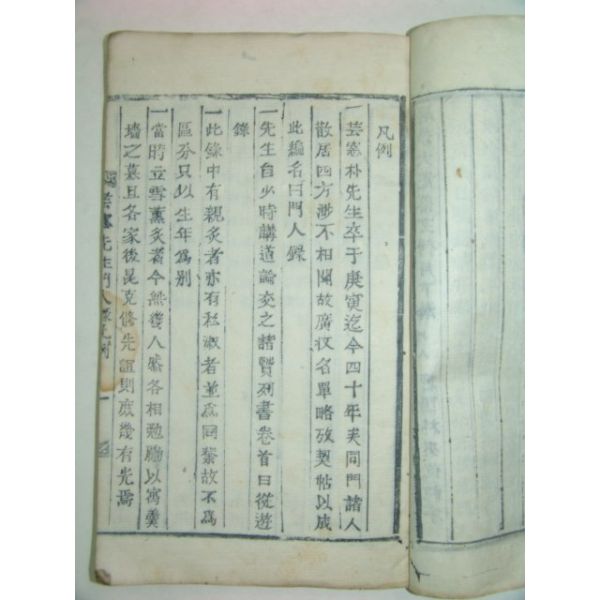 凡例
一芸窓朴先生卒于庚寅迄今四十年矣同門諸人
散居四方涉不相關故廣收名單略攷契帖以成
此編名曰門人錄
一先生自少時講道論交之諸賢列書卷首曰從遊
錄
一此錄中有親炙者亦有私淑者並爲同案故不爲
區分只以生年爲別
一當時立雪薰炙者今無幾人盛各相勉勵以寓羹
墻之慕且各家後昆克修先誼則庶幾有光焉
芸窓先生門人錄凡例 一